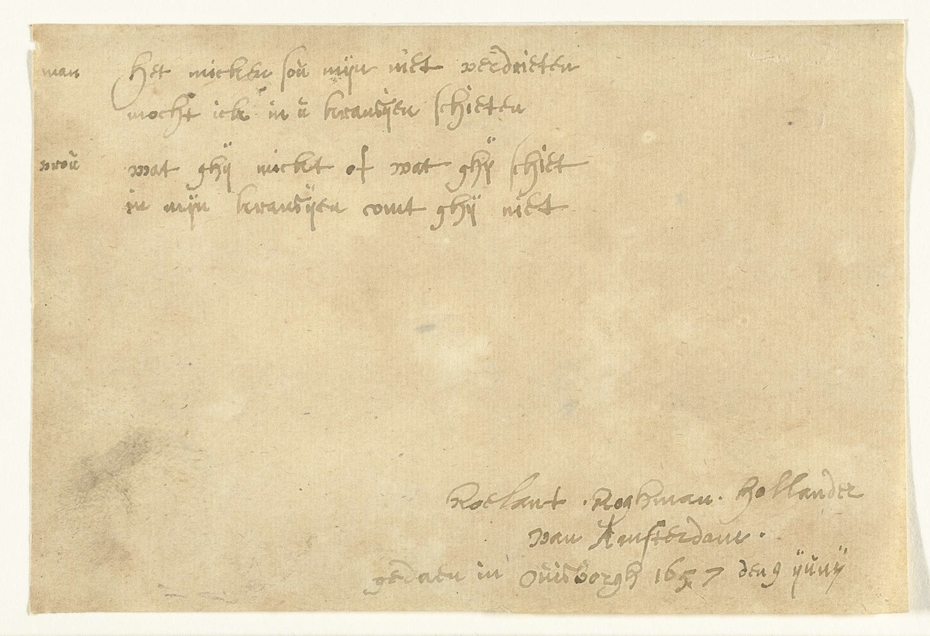 man Het micken soú mijn niet verdrieten
mocht ick in ú kransijen schieten
vroú wat ghij mickt of wat ghij schiet
in mijn kransijen comt ghij niet
Roelant . Roghman . hollander
van Amsterdam .
gedaen in Oúisborgh 1657 den 9 ijúnij